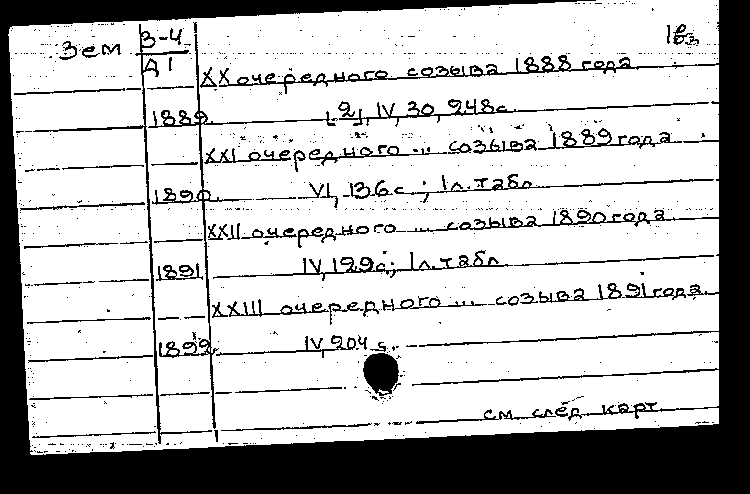 Зем З-4
Д1
XX очередного созыва 1888 года
1889. [2], IV, 30, 248с.
XXI очередного ... созыва 1889 года.
1890. VI, 136с.; 1л. табл.
XXII очередного ... созыва 1890 года
1891 IV, 129с.; 1л. табл.
XXIII очередного ... созыва 1891 года.
1892. IV, 204 с.
см. след карт